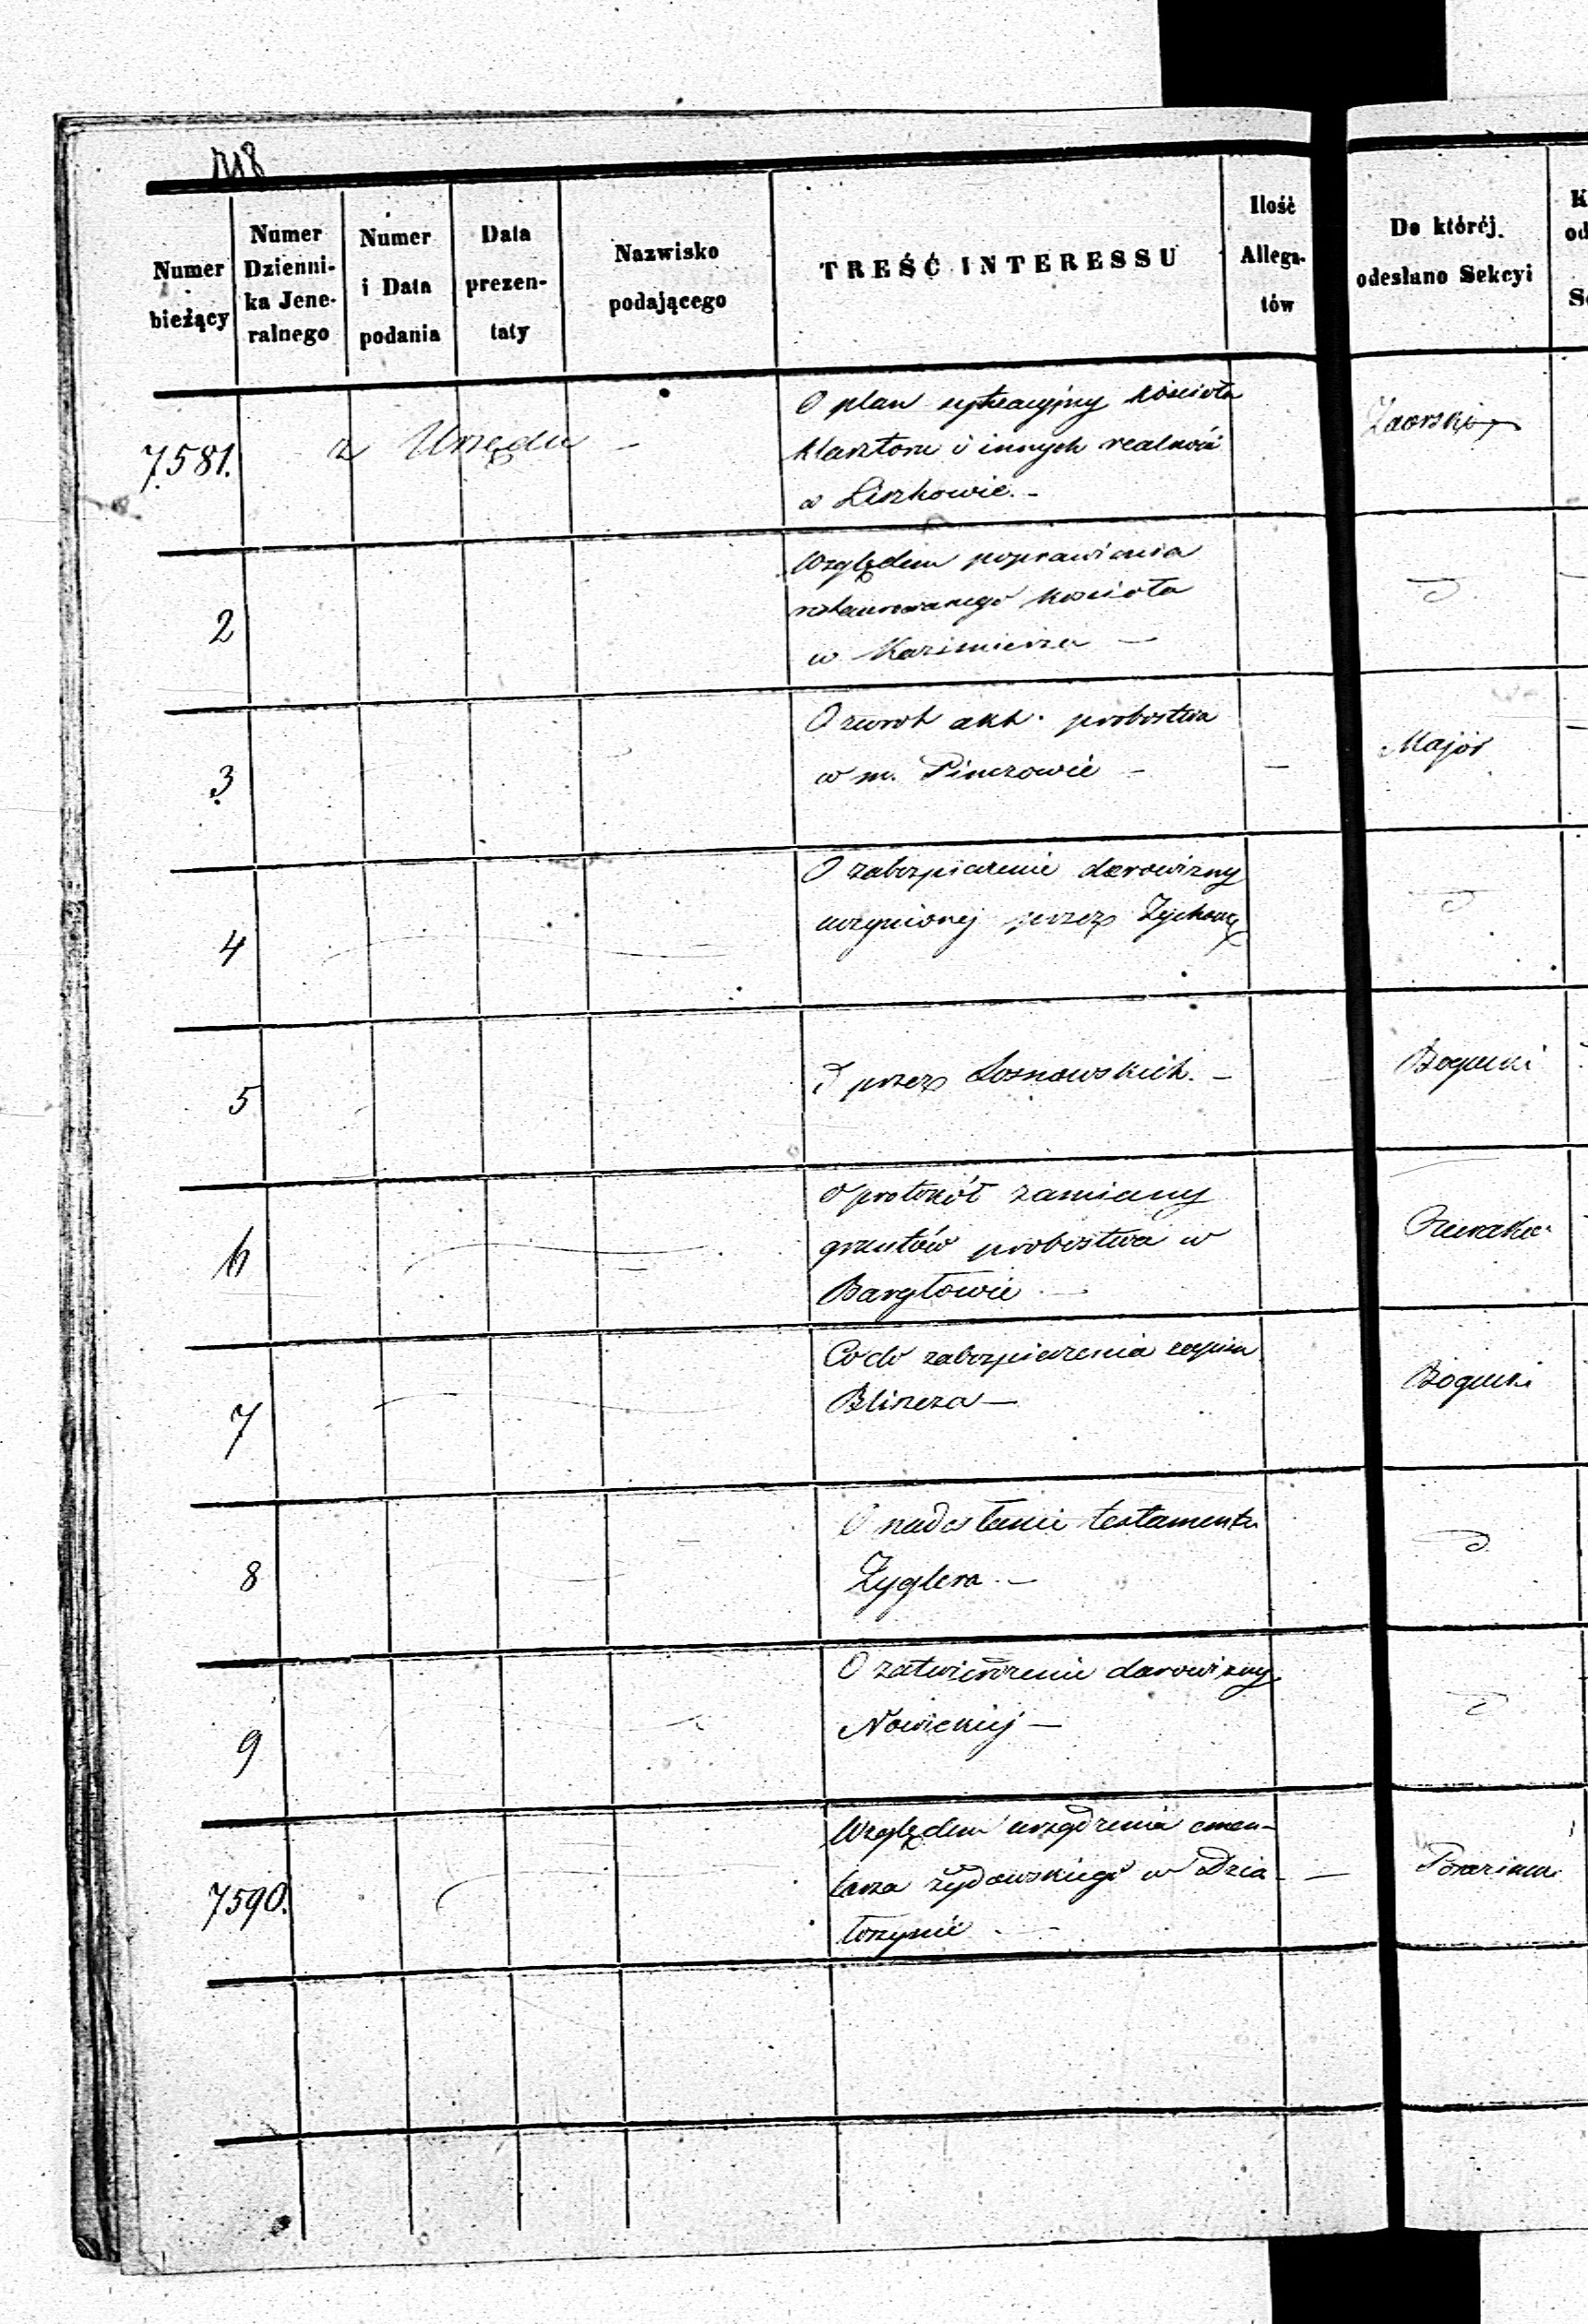 718
Numer bieżący
Numer Dzienni-ka Jene-ralnego
Numer i Data podania
Data prezen-taty
Nazwisko podającego
TREŚĆ INTERESSU
Ilość Allega-tów
Do któréj odesłano Sekcyi
7581. z Urzędu -
O plan sytuacyjny kościoła
klasztoru i innych realności
w Liszkowie. -
Zaorski
2
Względem poprawienia
restaurowanego kościoła
w Kazimierzu -
D
3
O zwrot akt. probostwa
w m. Pinczowie -
-
Major
4
O zabezpieczenie darowizny
uczynionej przez
D
5
D przez Sosnowskich. -
Bogucki
6
O protokół zamiany
gruntów probostwa w
Bargłowie -
7
Co do zabezpieczenia zapisu
Blisza -
Bogucki
8
O nadesłanie testamentu
Zyglera. -
D
9
O zatwierdzenie darowizny
Nowickiej -
D
7590.
Względem urządzenia cmen-
tarza żydowskiego w Dzia-
łoszynie -
-